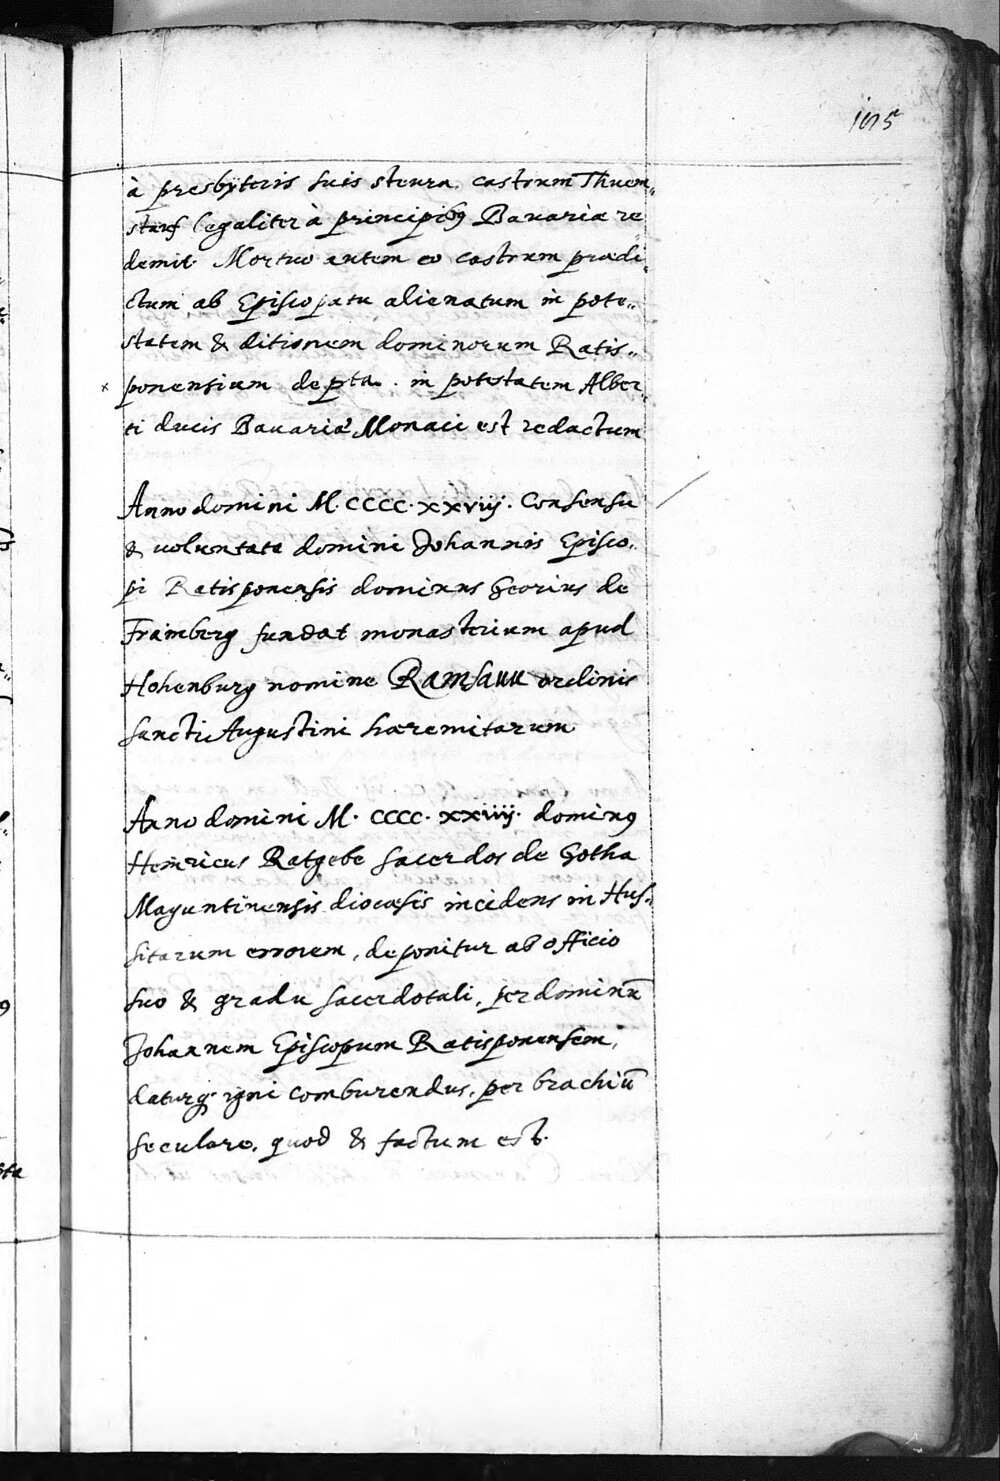 105
à presbÿteris suis steura. castrum Thuem„
stauf legaliter à principibꝫ Bauariæ re
demit. Mortuo autem eo castrum prædi„
ctum ab Episcopatu alienatum in pote„
statem & ditionem dominorum Ratis„
× ponensium de pta. . in potestatem Alber„
ti ducis Bauariæ Monaci est redactum
Anno domini M. CCCC. XXVIIJ. Consensu
& voluntate domini Johannis Episco„
pi Ratisponensis dominus Georius de
Framberg fundat monasterium apud
Hohenburg nomine RAMSAUU ordinis
sancti Augustini hæremitarum
Anno domini M. CCCC. XXIIIJ. dominꝯ
Heinricus Ratgebe sacerdos de Gotha
Maguntinensis diocæsis incidens in Hus„
sitarum errorem, deponitur ab officio
suo & gradu sacerdotali, per dominū
Johannem Episcopum Ratisponensem,
daturqꝫ igni comburendus, per brachiū
seculare, quod & factum est.